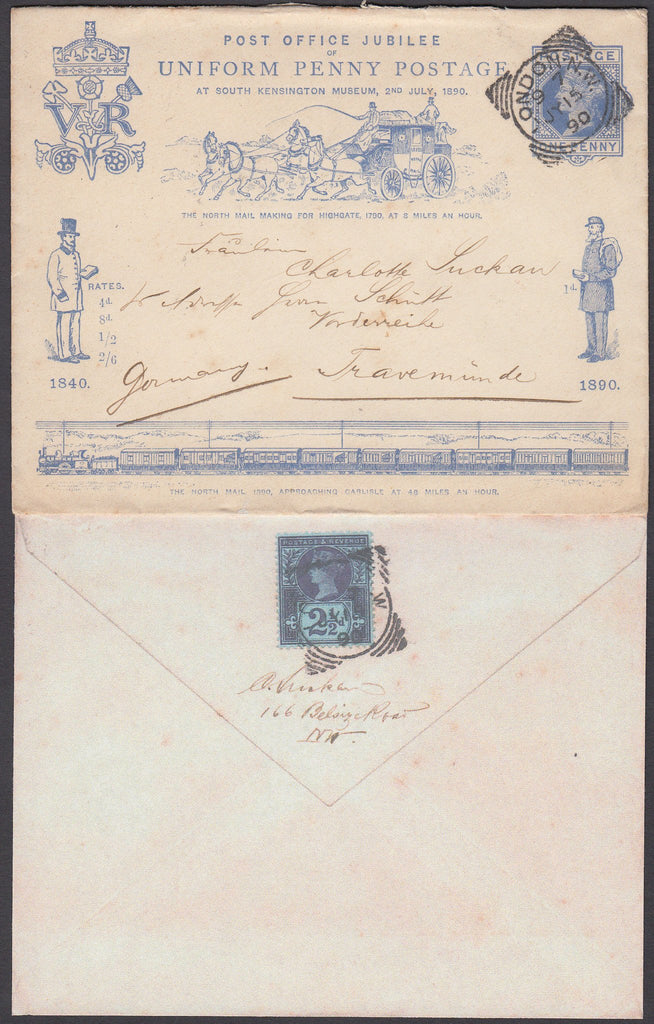 POST OFFICE JUBILEE
OF
UNIFORM PENNY POSTAGE
AT SOUTH KENSINGTON MUSEUM, 2ND JULY, 1890.
VR
POSTAGE
ONE PENNY
LONDON N.W.
90
THE NORTH MAIL MAKING FOR HIGHGATE, 1790, AT 8 MILES AN HOUR.
Fräulein
Charlotte Suckau
Adresse Herrn Schütt
Vorderreihe
Germany. Travemünde
RATES.
4d.
8d.
1/2
2/6
1840.
1d.
1890.
THE NORTH MAIL 1890, APPROACHING CARLISLE AT 48 MILES AN HOUR.
POSTAGE & REVENUE
2½d
166 Belsize Road
NW.